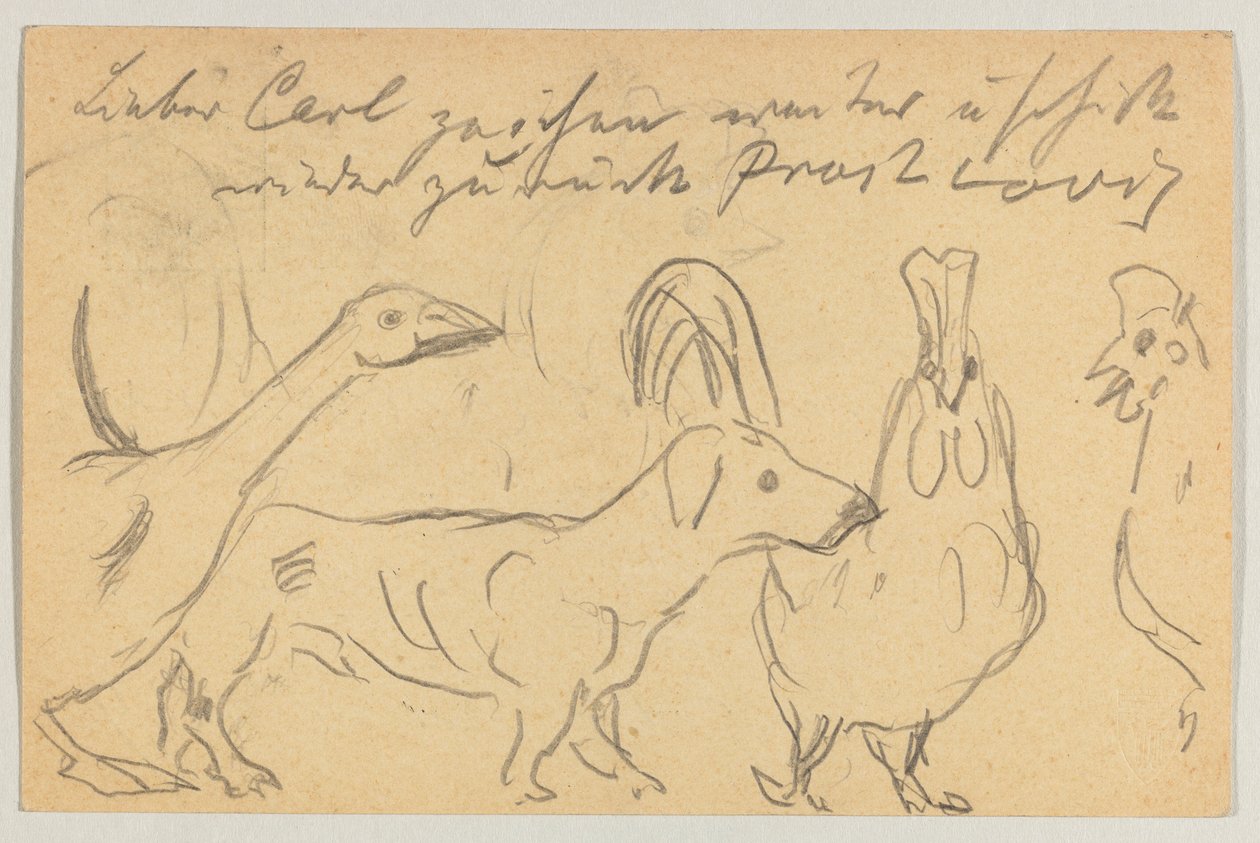 Lieber Carl zeichen weiter u schick
wieder zurück Prost Lovis